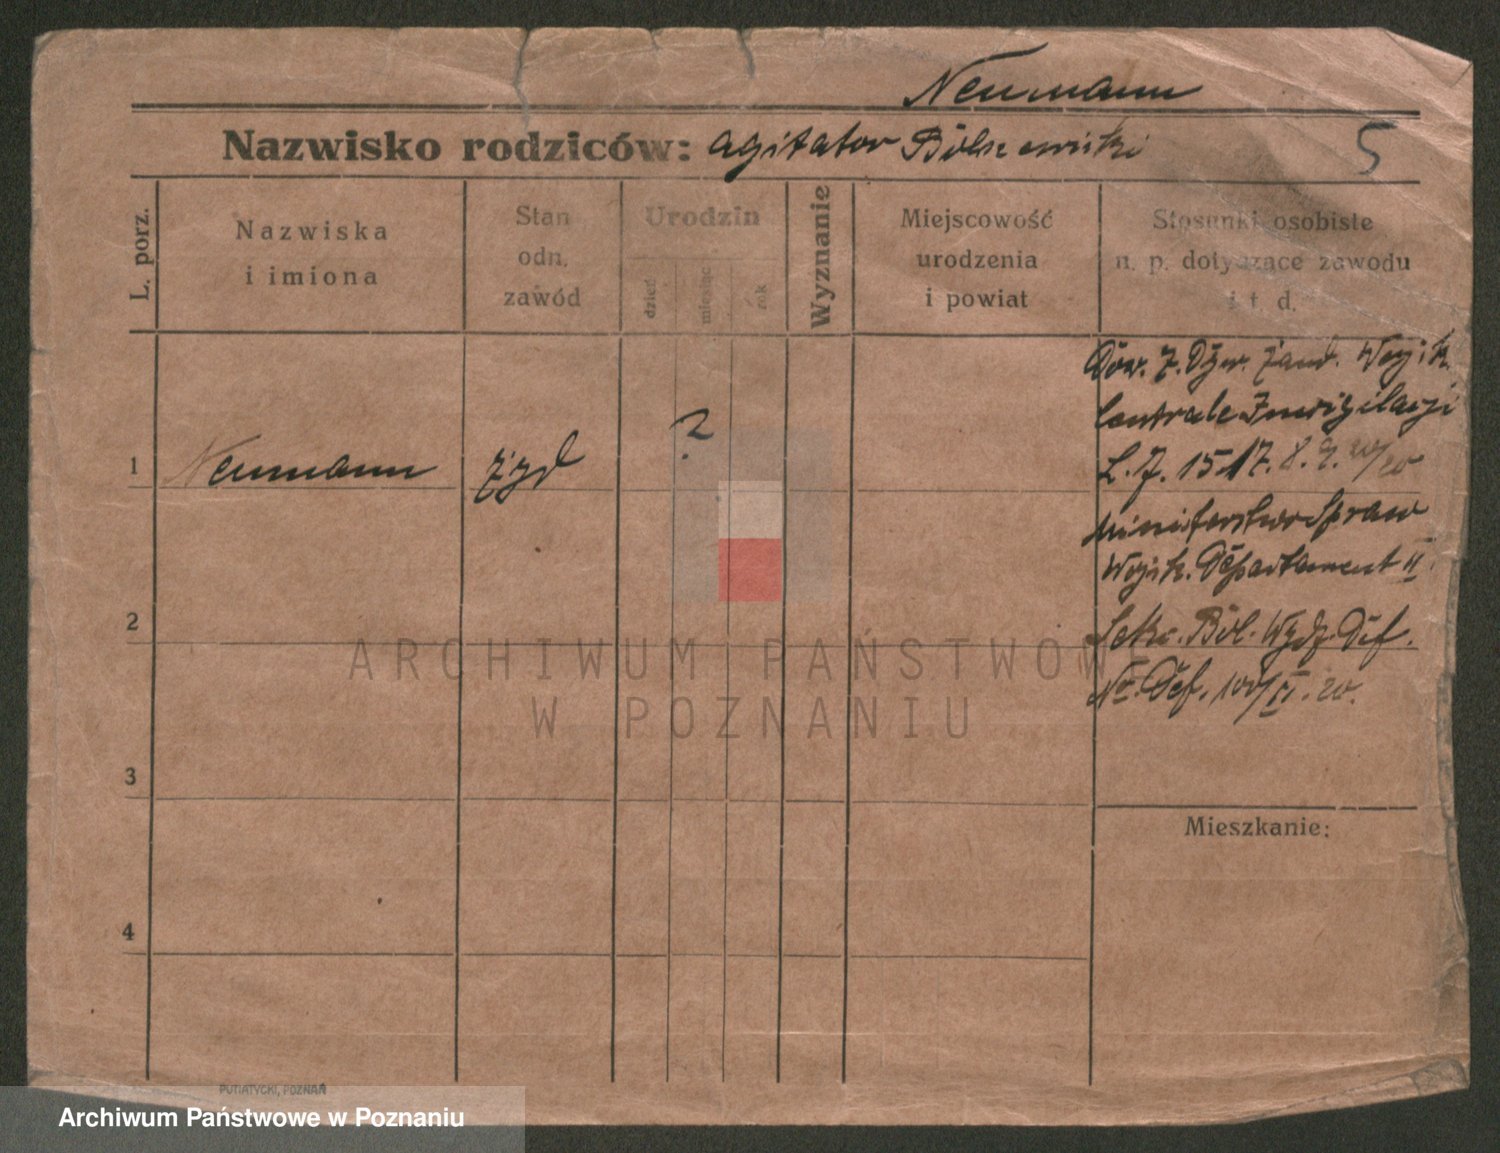 Neumann
Nazwisko rodziców: agitator Bolszewicki
5
L. porz.
Nazwiska
i imiona
Stan
odn.
zawód
Urodzin
dzień
miesiąc
rok
Wyznanie
Miejscowość
urodzenia
i powiat
Stosunki osobiste
n. p. dotyczące zawodu
i t. d.
1
Neumann
żyd
?
Dow. Ż. Dyw. Żand. Wojsk.
Centrale Inwigilacji
L. J. 1517. 8. 9.
Ministerstwo Spraw
Wojsk. Departament II.
Sekc. Wydz. Def.
No. Def. 100/II. 20.
2
3
4
Mieszkanie:
PUTIATYCKI, POZNAŃ
ARCHIWUM PAŃSTWOW
W POZNANIU
Archiwum Państwowe w Poznaniu